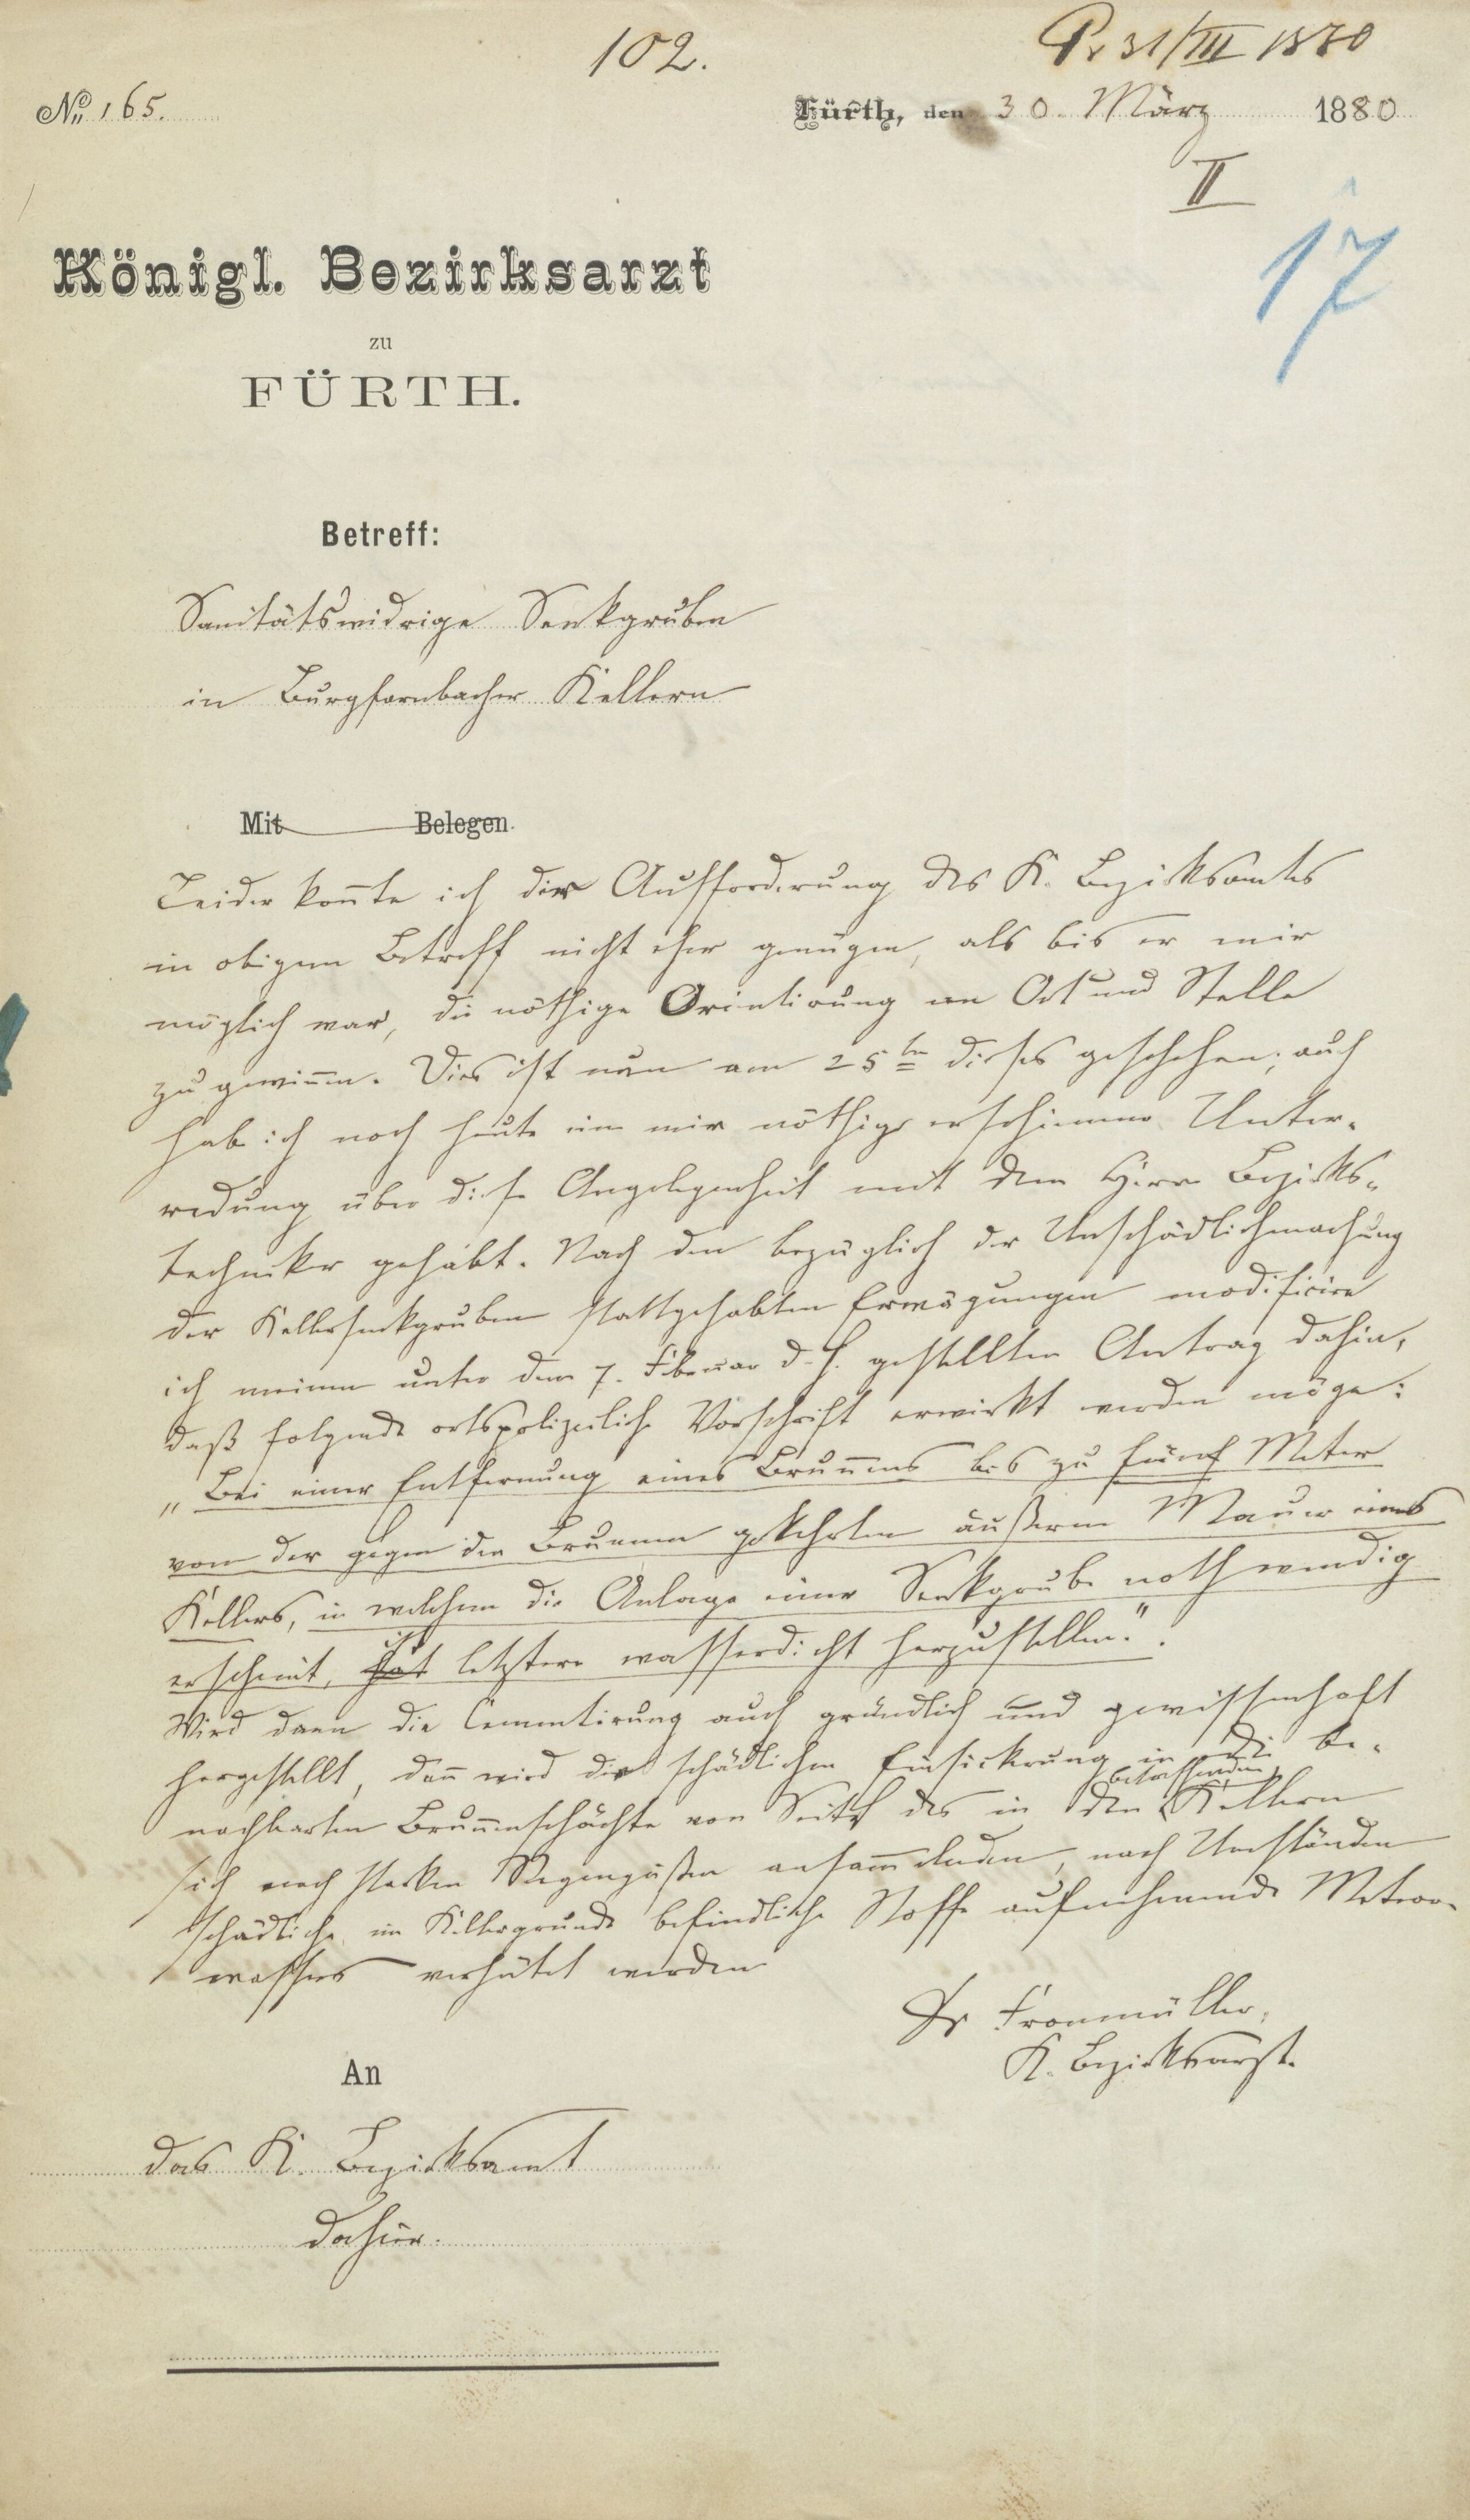 102.
Pr 31/III 1880
No. 165.
Fürth, den 30. März 1880
II
17
Königl. Bezirksarzt
zu
FÜRTH.
Betreff:
Sanitätswidrige Senkgruben
in Burgfarnbacher Kellern
Mit Belegen.
Leider kon̄te ich der Aufforderung des K. Bezirksamtes
in obigem Betreff nicht eher genügen, als bis er mir
möglich war, die nöthige Orientirung an Ort und Stelle
zu gewin̄en. Dies ist nun am 25ten dieses geschehen; auch
hab ich noch heute eine mir nöthig erschienene Unter-
redung über diese Angelegenheit mit dem Herrn Bezirks-
techniker gehabt. Nach den bezüglich der Unschädlichmachung
der Kellersenkgruben stattgehabten Erwägungen modificire
ich meinen unter dem 7. Februar d. J. gestellten Antrag dahin,
daß folgende ortspolizeiliche Vorschrift erwirkt werden möge:
„Bei einer Entfernung eines Brun̄ens bis zu fünf Meter
von der gegen den Brunnen gekehrten äußeren Mauer eines
Kellers, in welchem die Anlage einer Senkgrube nothwendig
erscheint, hat ist letztere wasserdicht herzustellen.“.
Wird dann die Cementirung auch gründlich und gewissenhaft
hergestellt, dan̄ wird die schädlichen Einsickerung in die be-
nachbarten Brun̄enschächte von Seite des in den betreffenden Kellern
sich nach starken Regengüßen ansam̄elnden, nach Umständen
schädliche im Kellergrunde befindliche Stoffe aufnehmende Meteor-
wassers verhütet werden
Dr Fronmüller,
K. Bezirksarzt.
An
das K. Bezirksamt
dahier.